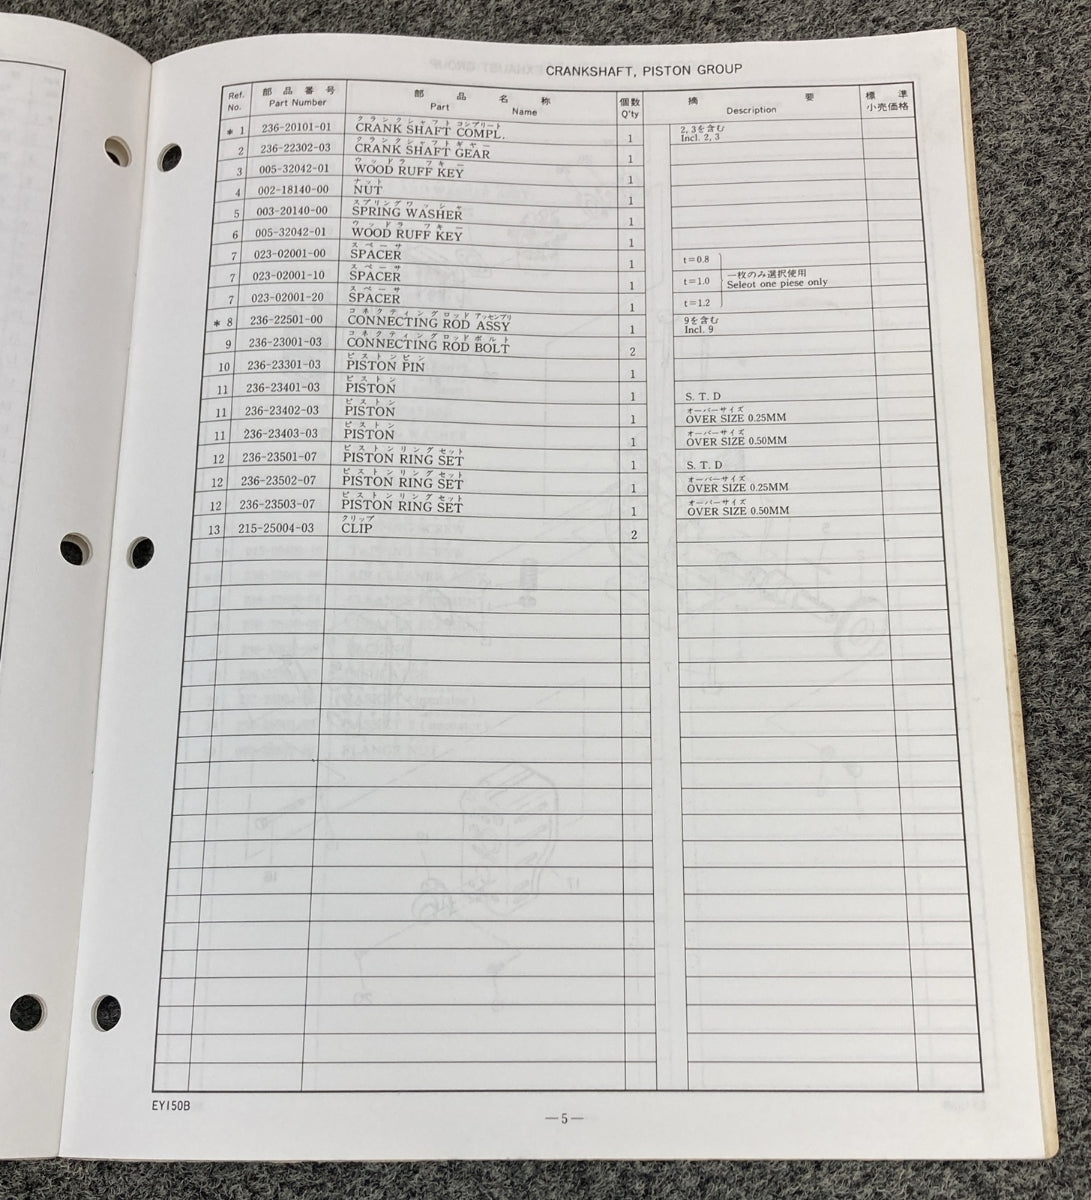 CRANKSHAFT, PISTON GROUP
Ref. No. 部品番号 Part Number 部品名称 Part Name 個数 Q'ty 摘要 Description 標準小売価格
クランクシャフト コンプリート
* 1 236-20101-01 CRANK SHAFT COMPL. 1 2, 3を含む Incl. 2, 3
クランクシャフトギヤー
2 236-22302-03 CRANK SHAFT GEAR 1
ウッドラフキー
3 005-32042-01 WOOD RUFF KEY 1
ナット
4 002-18140-00 NUT 1
スプリングワッシャ
5 003-20140-00 SPRING WASHER 1
ウッドラフキー
6 005-32042-01 WOOD RUFF KEY 1
スペーサ
7 023-02001-00 SPACER 1 t=0.8
スペーサ
7 023-02001-10 SPACER 1 t=1.0 一枚のみ選択使用 Seleot one piese only
スペーサ
7 023-02001-20 SPACER 1 t=1.2
コネクティングロッド アッセンブリ
* 8 236-22501-00 CONNECTING ROD ASSY 1 9を含む Incl. 9
コネクティングロッドボルト
9 236-23001-03 CONNECTING ROD BOLT 2
ピストンピン
10 236-23301-03 PISTON PIN 1
ピストン
11 236-23401-03 PISTON 1 S. T. D
ピストン オーバーサイズ
11 236-23402-03 PISTON 1 OVER SIZE 0.25MM
ピストン オーバーサイズ
11 236-23403-03 PISTON 1 OVER SIZE 0.50MM
ピストンリングセット
12 236-23501-07 PISTON RING SET 1 S. T. D
ピストンリングセット オーバーサイズ
12 236-23502-07 PISTON RING SET 1 OVER SIZE 0.25MM
ピストンリングセット オーバーサイズ
12 236-23503-07 PISTON RING SET 1 OVER SIZE 0.50MM
クリップ
13 215-25004-03 CLIP 2
EY150B
—5—